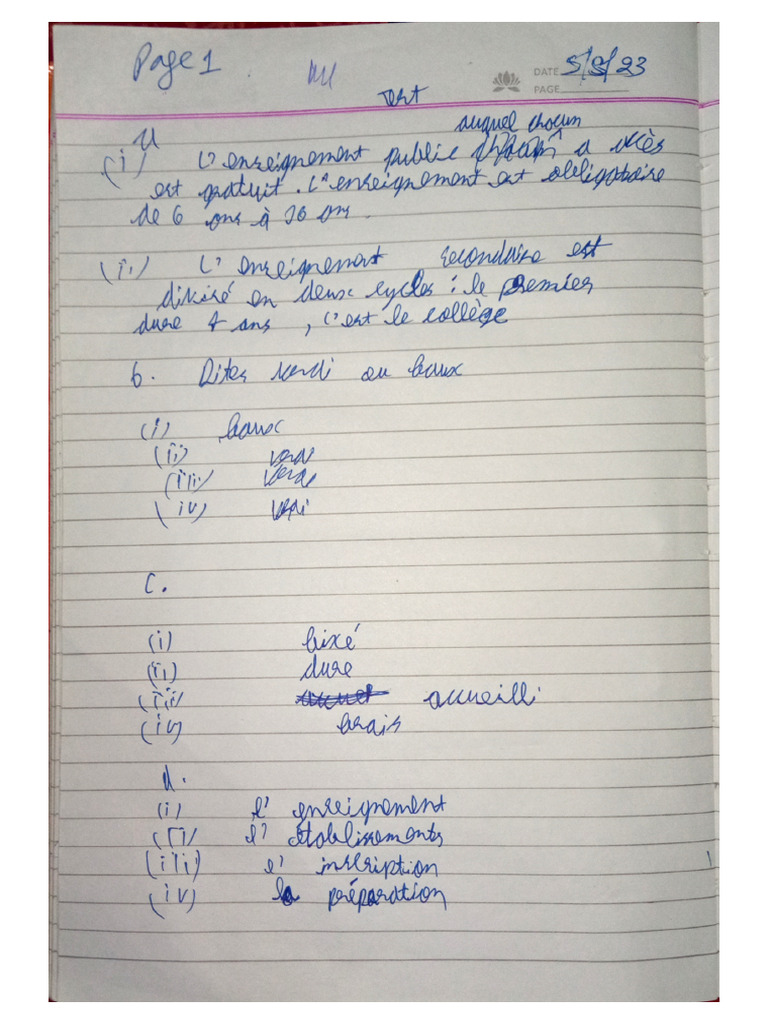 Page 1
DATE 5/9/23
PAGE
Test
auquel chacun
(i) L'enseignement public a accès
est gratuit. L'enseignement est obligatoire
de 6 ans à 16 ans.
(ii) L'enseignement secondaire est
divisé en deux cycles : le premier
dure 4 ans, c'est le collège
b. Dites vrai ou faux
(i) faux
(ii) vrai
(iii) vrai
(iv) vrai
C.
(i) fixé
(ii) dure
(iii) accueilli
(iv) frais
d.
(i) l'enseignement
(ii) l'établissements
(iii) l'inscription
(iv) la préparation